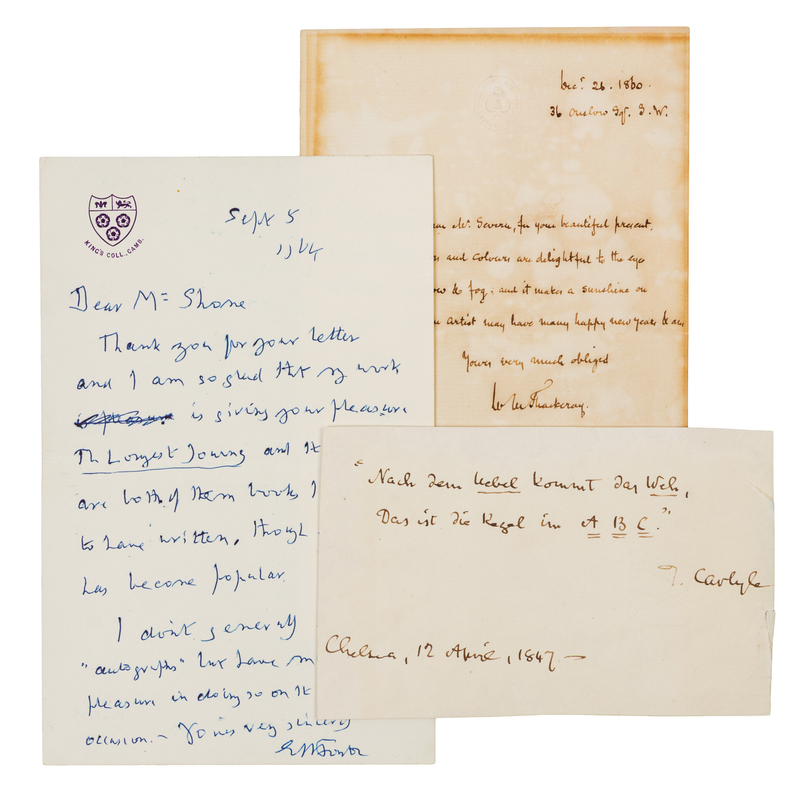 KING'S COLL., CAMB.
Sept 5
Dear Mr Shone
Thank you for your letter
and I am so glad that my work
is giving you pleasure
The Longest Journey and
are both of them books I
to have written, though
has become popular.
I don't generally
"autographs" but have
pleasure in doing so on
occasion. – Yours very sincerely
EMForster
Decr. 26. 1860.
36 Onslow Sqr. S.W.
Mr. Severn, for your beautiful present.
and colours are delightful to the eye
& fog: and it makes a sunshine on
artist may have many happy new years &
Yours very much obliged
W M Thackeray.
"Nach dem Uebel kommt das Weh,
Das ist die Regel im A B C."
T. Carlyle
Chelsea, 12 April, 1847 –